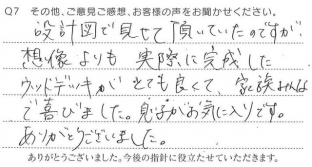 Q7 その他、ご意見ご感想、お客様の声をお聞かせください。
設計図で見せて頂いていたのですが、
想像よりも実際に完成した
ウッドデッキがとても良くて、家族みんな
で喜びました。息子がお気に入りです。
ありがとうございました。
ありがとうございました。今後の指針に役立たせていただきます。